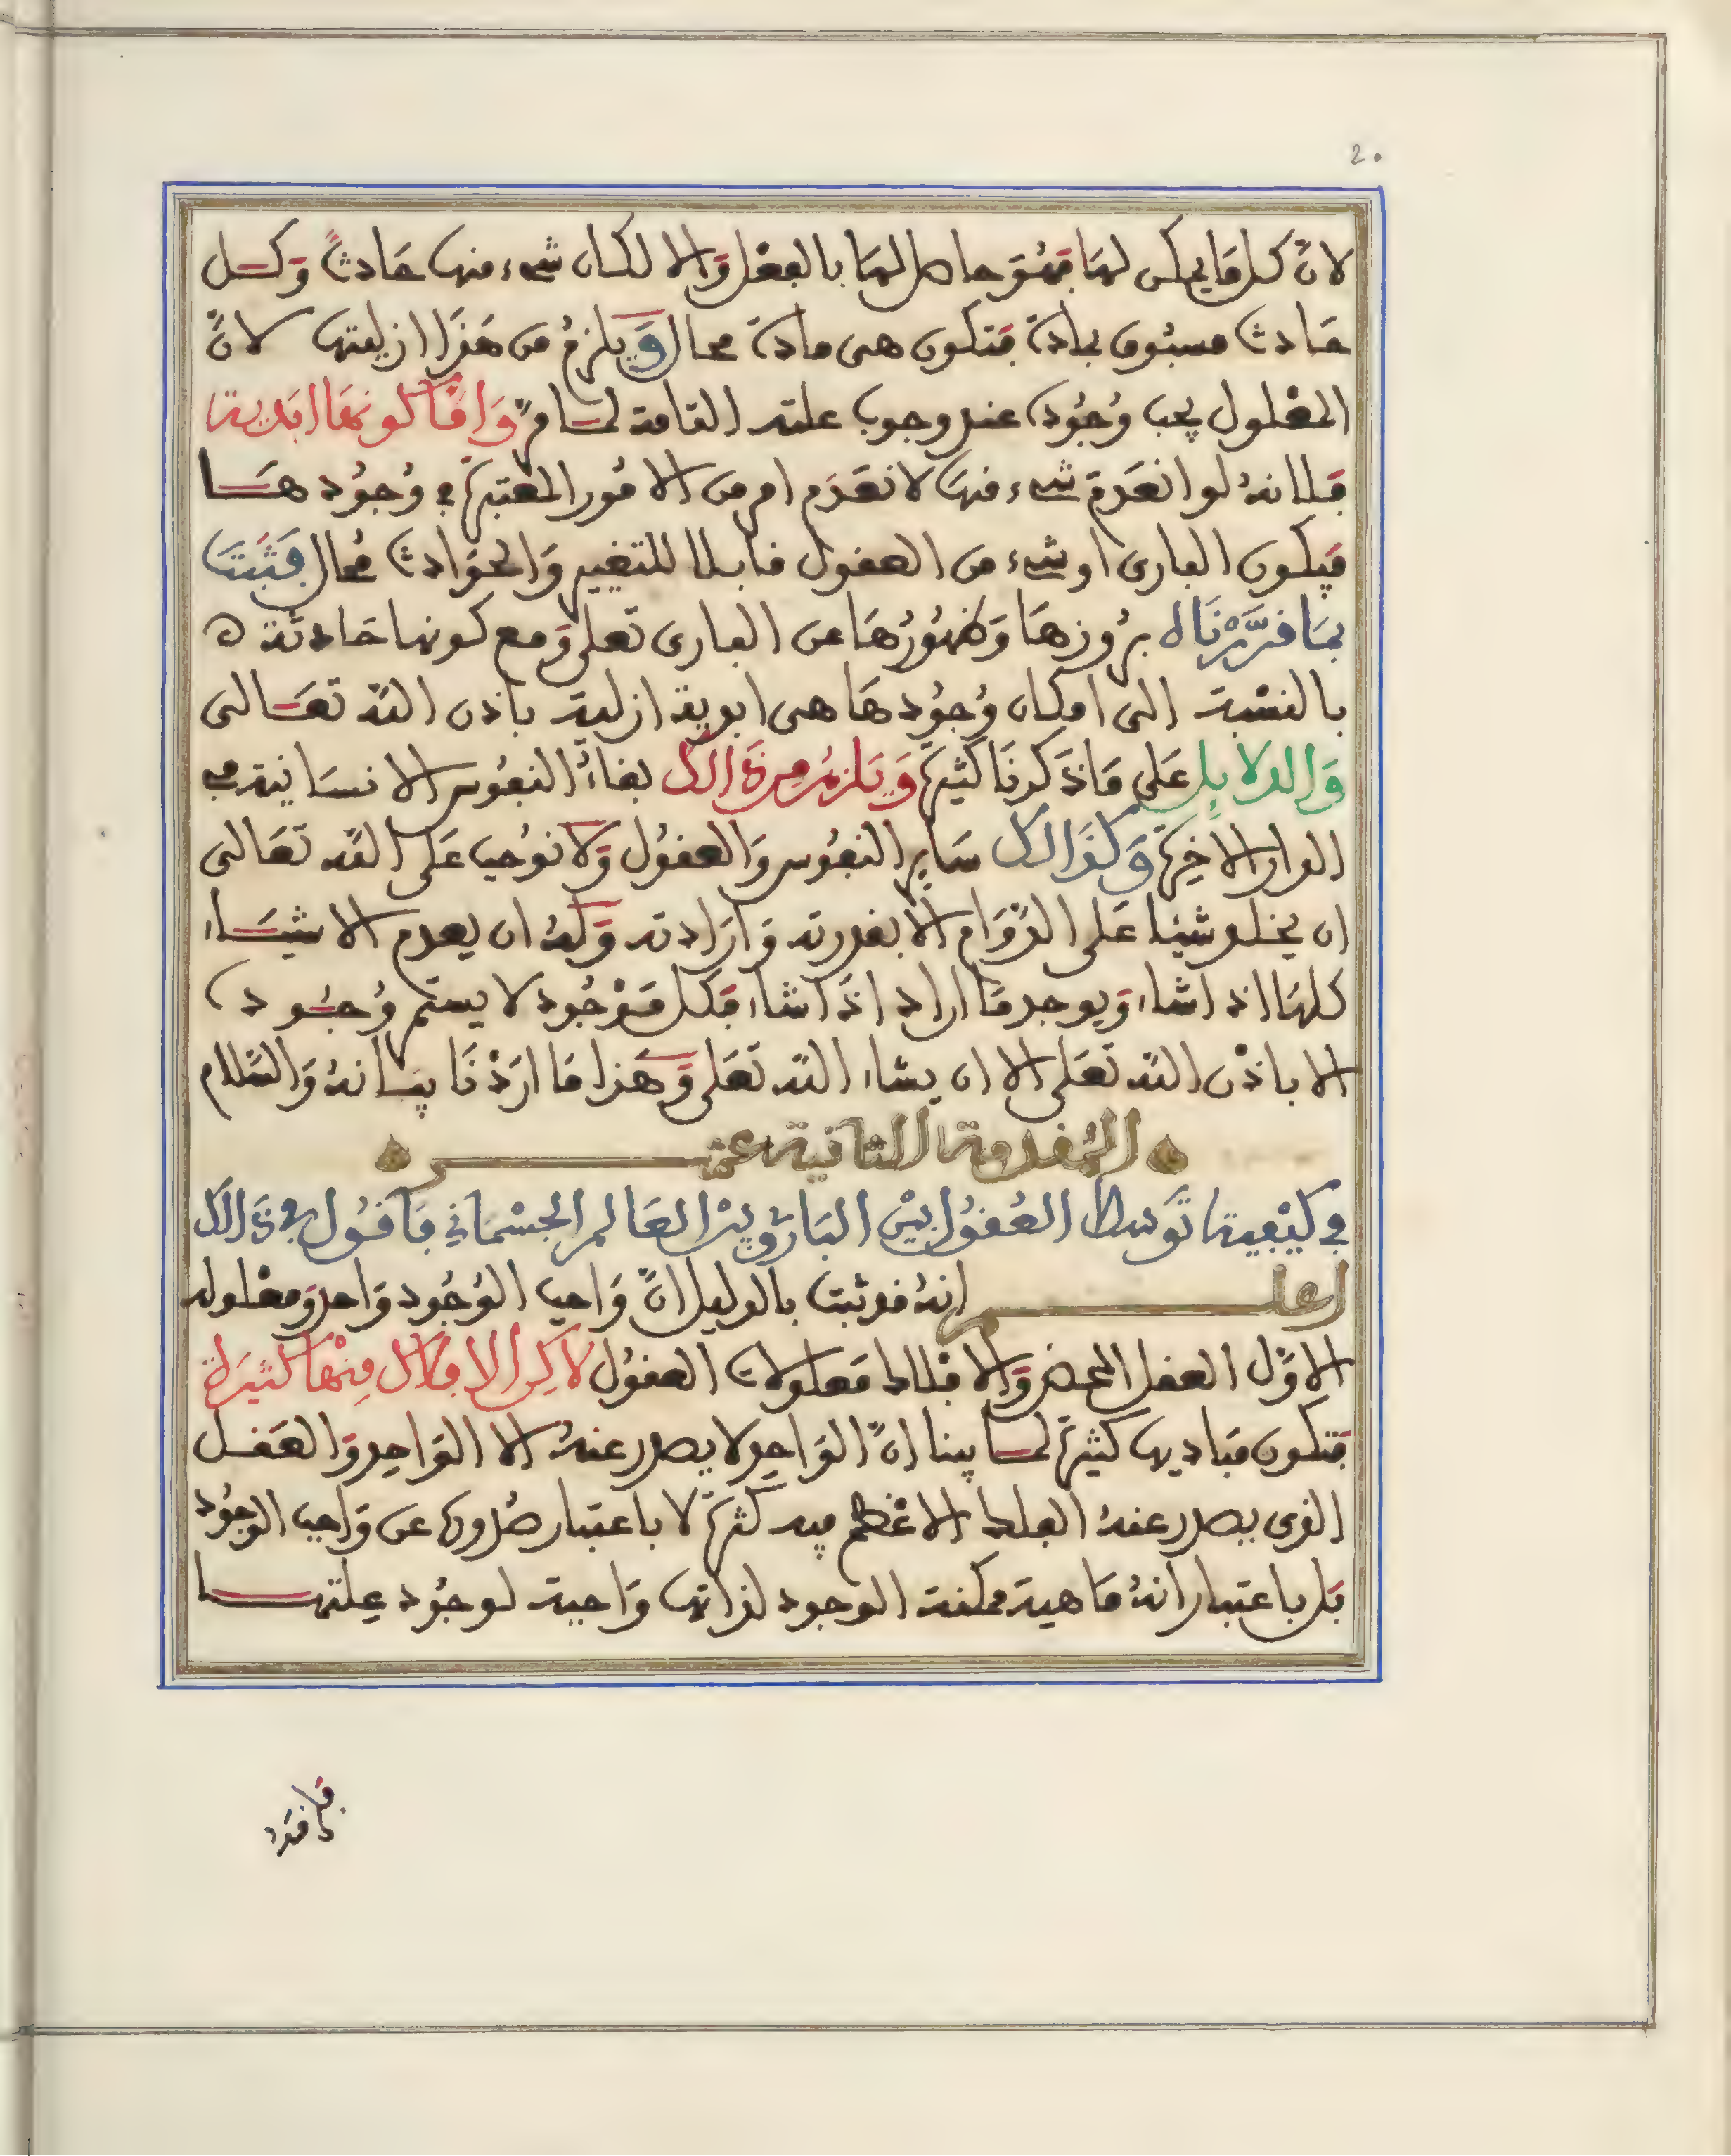 20
لانّ كل مَا يمكن لهَا فهُوَ حاصل لهَا بالفعْل وَالا لكان شيء منهَا حَادثاً وَكـل
حَادث مسبُوق بمادة فتكون هى مادة محال وَيلزمُ من هَذَا ازليتها لانّ
المعْلول يجب وُجُوده عند وجوب علته التامة لمـا مرّ وَامّا كونهَا ابَدية
فلانهُ لو انعَدمَ شيء منهَا لانعَدَم امر من الامُور المعتبرة في وُجوُدهـا
فيكون البارى او شيء من العقول قابلا للتغيير وَالحوَادث مُحال فَثبَتَ
بمَا قرَّرْنَاه برُوزهَا وَظهُورُهَا عن البارى تعَلى وَمع كونها حَادثة ه
بالنسْبة الى امكان وُجوُدهَا هى ابدية ازلية باذن اللّه تعَـالى
وَالدلايِل عَلى مَا ذَكرنَا كثيرة وَيَلزمُ مِن ذَالك بقاءُ النفُوس الانسَانية في
الدار الاخِرة وَكذَالك سَاير النفُوس وَالعقوُل وَلا نوُجب عَلى اللّه تعَالى
ان يخلو شيئا عَلى الدّوَام الا بقدرته وَارَادته وَلهُ ان يعدم الاشيَـاء
كلهَا اذا شاء وَيوجد مَا اراد اذَا شاء فكل مَوْجُود لا يستمر وُجـُوده
الا باذْن اللّه تعَلى الا ان يشاء اللّه تعَلى وَهَذا مَا ارَدْنَا بيَانهُ وَالسَّلام
المُقدمة الثانية عشـر
في كيْفية تَوَسط العُقوُل بيْن البَارئ وَبيْن العَالم الجسْمَاني فَاقـُول في ذَالك
اعلـم انهُ قد ثبت بالدليل انّ وَاجب الوُجُود وَاحد وَمعْلوله
الاوّل العقل المحض وَالافلاك مَعلولات العقوُل لاكِن الافلاك مِنْهَا كثيَرة
فتكون مَباديها كثيرة لمـا بينا انّ الوَاحِد لا يصدر عنهُ الا الوَاحِد وَالعَقـل
الذى يصدر عنهُ الفلك الاعْظم فيه كثرة لا باعتبار صُدورهَا عن وَاجب الوجُود
بَل باعتبار انهُ مَاهية ممكنة الوجود لذاتها وَاجبة لوجُود عِلتهـا